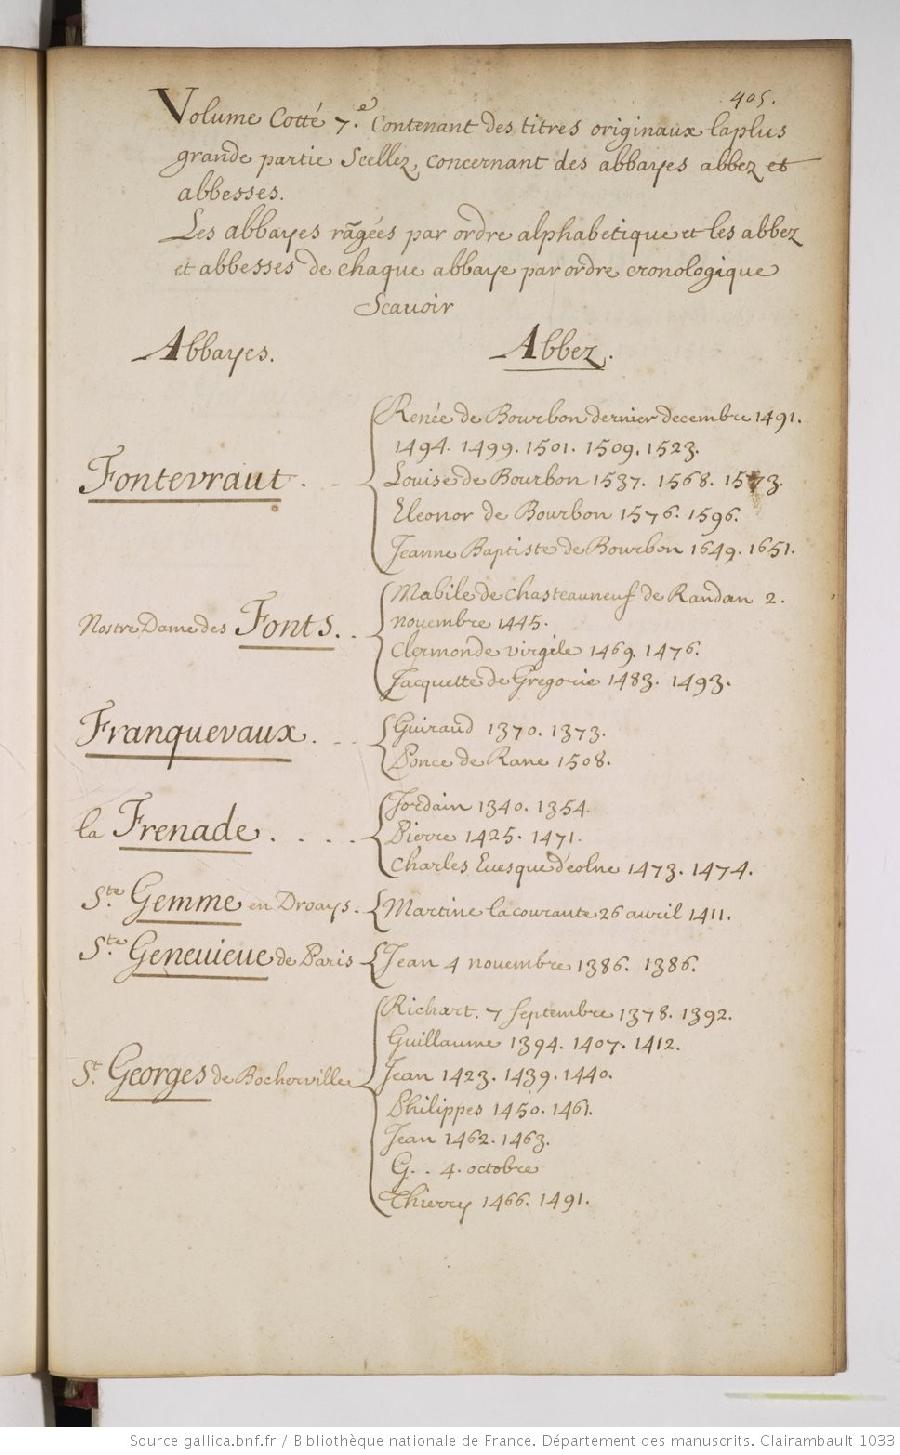 405.
Volume Cotté 7.e Contenant des titres originaux la plus
grande partie Scellez, concernant des abbayes abbez et
abbesses.
Les abbayes rãgées par ordre alphabetique et les abbez
et abbesses de chaque abbaye par ordre cronologique
Scauoir
Abbayes. Abbez.
Fontevraut . . Renée de Bourbon dernier decembre 1491.
1494. 1499. 1501. 1509. 1523.
Louise de Bourbon 1537. 1568. 1573.
Eleonor de Bourbon 1576. 1596.
Jeanne Baptiste de Bourbon 1649. 1651.
Nostre Dame des Fonts. . . Mabile de Chasteauneuf de Randan 2.
nouembre 1445.
Clermonde virgile 1469. 1476.
Jacquette de Gregoire 1483. 1493.
Franquevaux. . . Guiraud 1370. 1373.
Ponce de Rane 1508.
la Frenade. . . . . Jordain 1340. 1354.
Pierre 1425. 1471.
Charles Euesque d'eolne 1473. 1474.
Ste. Gemme en Droays. Martine la courante 26 auril 1411.
Ste. Geneuieue de Paris Jean 4 nouembre 1386. 1386.
St. Georges de Bocherville Richart. 7 septembre 1378. 1392.
Guillaume 1394. 1407. 1412.
Jean 1423. 1439. 1440.
Philippes 1450. 1461.
Jean 1462. 1463.
G. . 4. octobre
Thierry 1466. 1491.
Source gallica.bnf.fr / Bibliothèque nationale de France. Département des manuscrits. Clairambault 1033